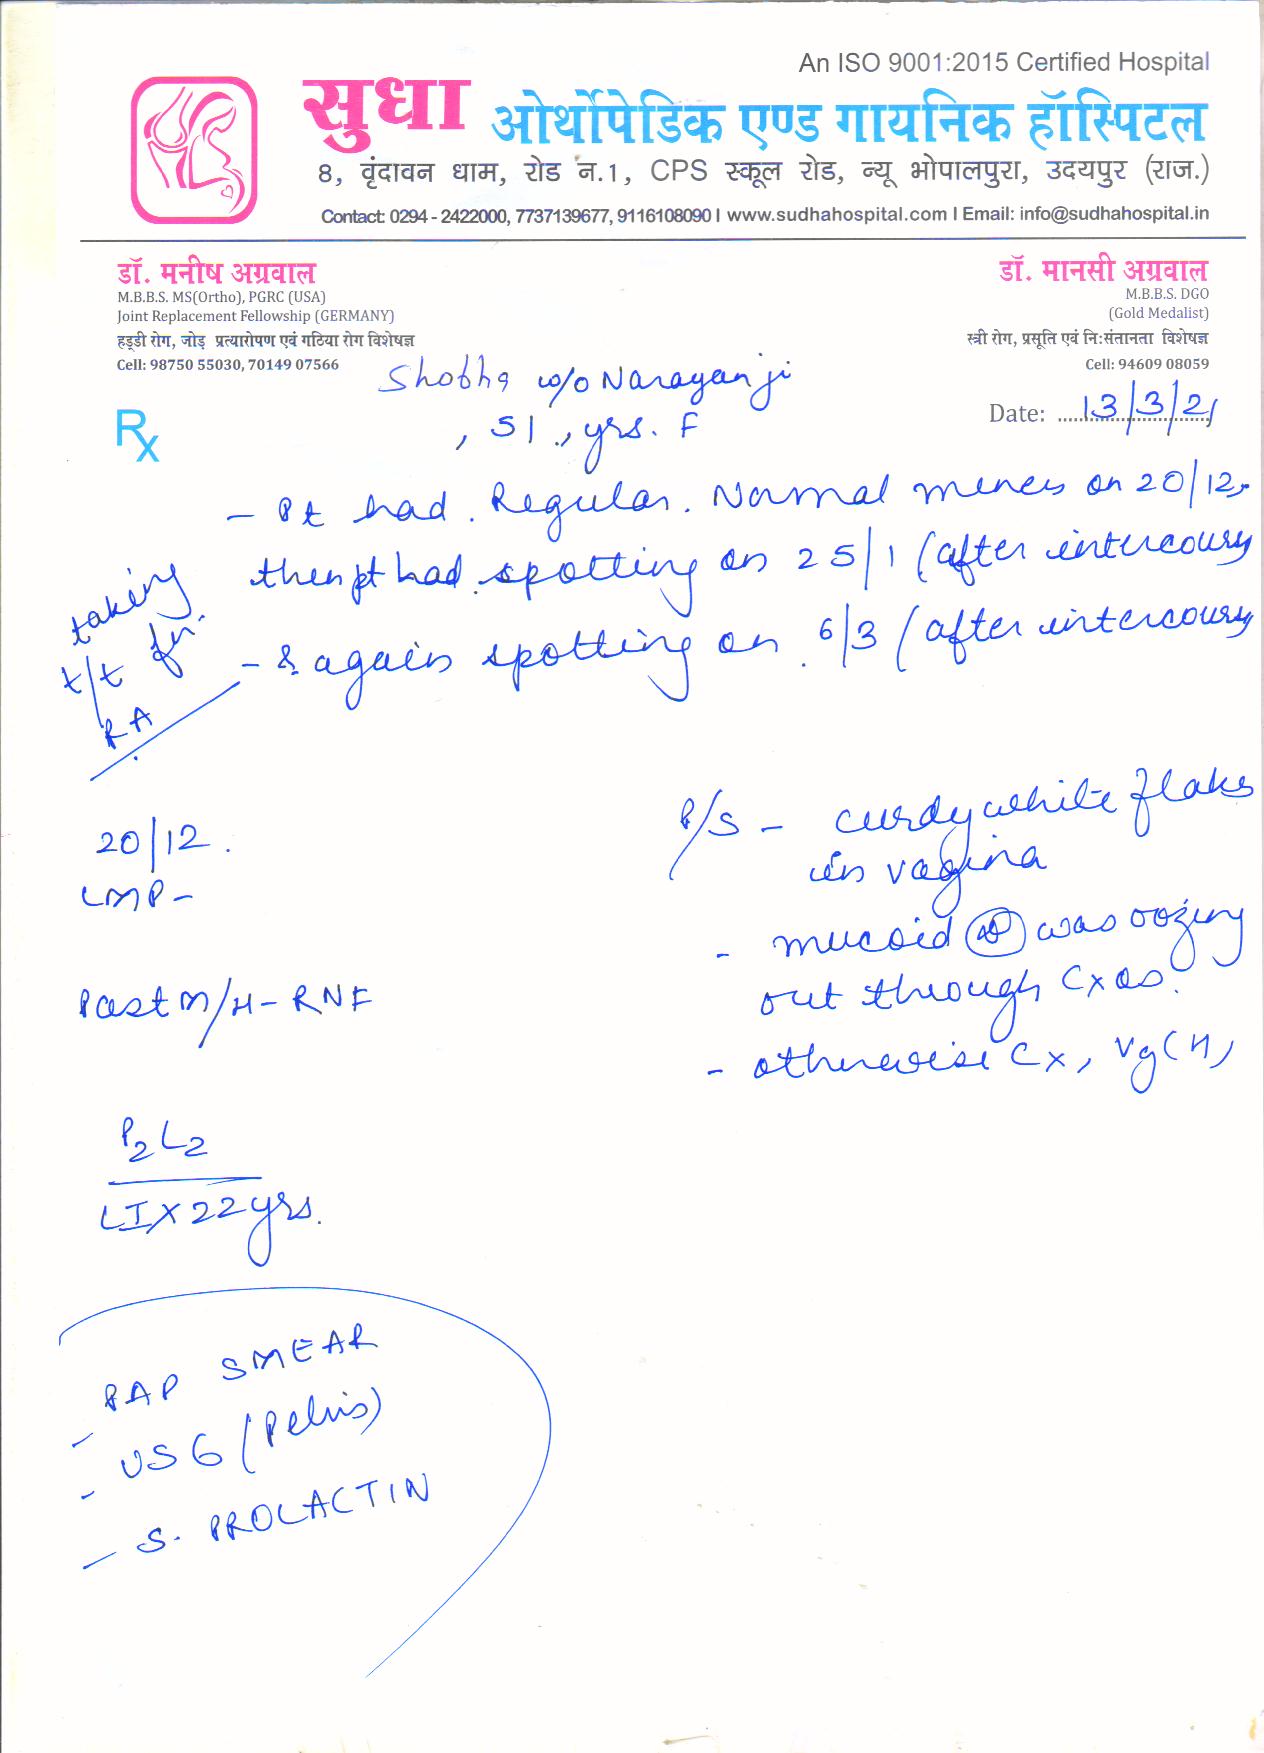 An ISO 9001:2015 Certified Hospital
सुधा ओर्थोपेडिक एण्ड गायनिक हॉस्पिटल
8, वृंदावन धाम, रोड न.1, CPS स्कूल रोड, न्यू भोपालपुरा, उदयपुर (राज.)
Contact: 0294 - 2422000, 7737139677, 9116108090 I www.sudhahospital.com I Email: info@sudhahospital.in
डॉ. मनीष अग्रवाल
M.B.B.S. MS(Ortho), PGRC (USA)
Joint Replacement Fellowship (GERMANY)
हड्डी रोग, जोड़ प्रत्यारोपण एवं गठिया रोग विशेषज्ञ
Cell: 98750 55030, 70149 07566
डॉ. मानसी अग्रवाल
M.B.B.S. DGO
(Gold Medalist)
स्त्री रोग, प्रसूति एवं नि:संतानता विशेषज्ञ
Cell: 94609 08059
Shobha w/o Narayanji
, 51, yrs. F
Date: 13/3/21
Rx
- Pt had. Regular. Normal menes on 20/12,
then pt had spotting on 25/1 (after intercourse
- & again spotting on 6/3 (after intercourse
taking
t/t for
RA
20/12.
LMP -
Past M/H - RNF
P2L2
LI X 22 yrs.
P/S - curdy white flakes
in vagina
- mucoid was oozing
out through Cx os.
- otherwise Cx, Vg (N)
- PAP SMEAR
- USG (Pelvis)
- S. PROLACTIN